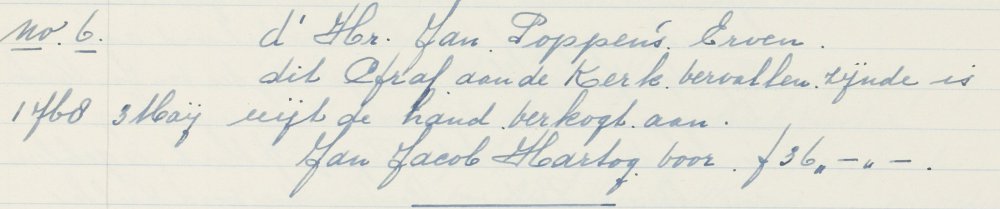 no. 6. d' Hr. Jan Poppen's Erven.
dit Graf aan de Kerk vervallen zijnde is
1768 3 Maij uijt de hand verkogt aan.
Jan Jacob Hartog voor f 36,,-,,-.